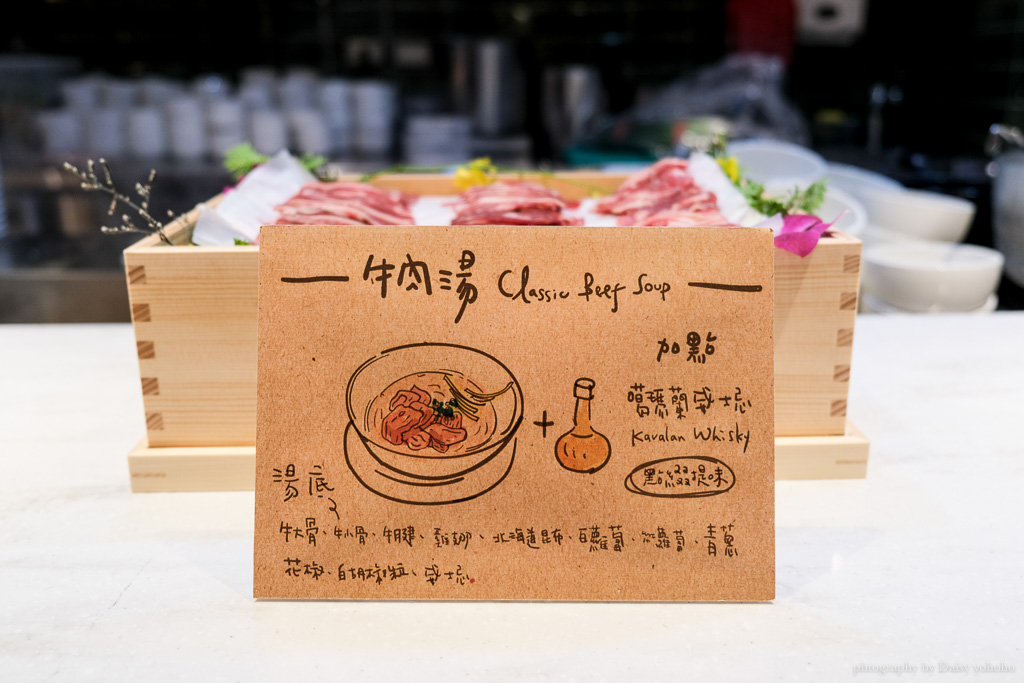 牛肉湯 Classic Beef Soup
加點
葛瑪蘭威士忌
Kavalan Whisky
點綴提味
湯底
牛大骨、牛小骨、牛腱、雞腳、北海道昆布、白蘿蔔、紅蘿蔔、青蔥
花椒、白胡椒粒、威士忌
photography by Daisy yohoho